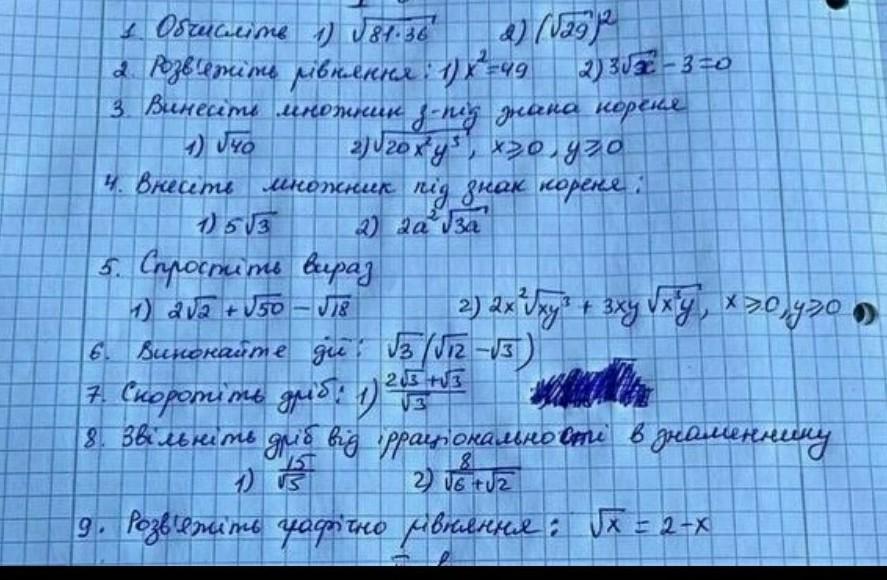 1. Обчисліть 1) √81·36 2) (√29)²
2. Розв'яжіть рівняння: 1) x²=49 2) 3√x - 3 = 0
3. Винесіть множник з-під знака кореня
1) √40 2) √20x²y⁵, x≥0, y≥0
4. Внесіть множник під знак кореня:
1) 5√3 2) 2a²√3a
5. Спростіть вираз
1) 2√2 + √50 - √18 2) 2x²√xy³ + 3xy√x³y, x≥0, y≥0
6. Виконайте дії: √3(√12 - √3)
7. Скоротіть дріб: 1) (2√3+√3)/√3
8. Звільніть дріб від ірраціональності в знаменнику
1) 15/√5 2) 8/(√6+√2)
9. Розв'яжіть графічно рівняння: √x = 2-x